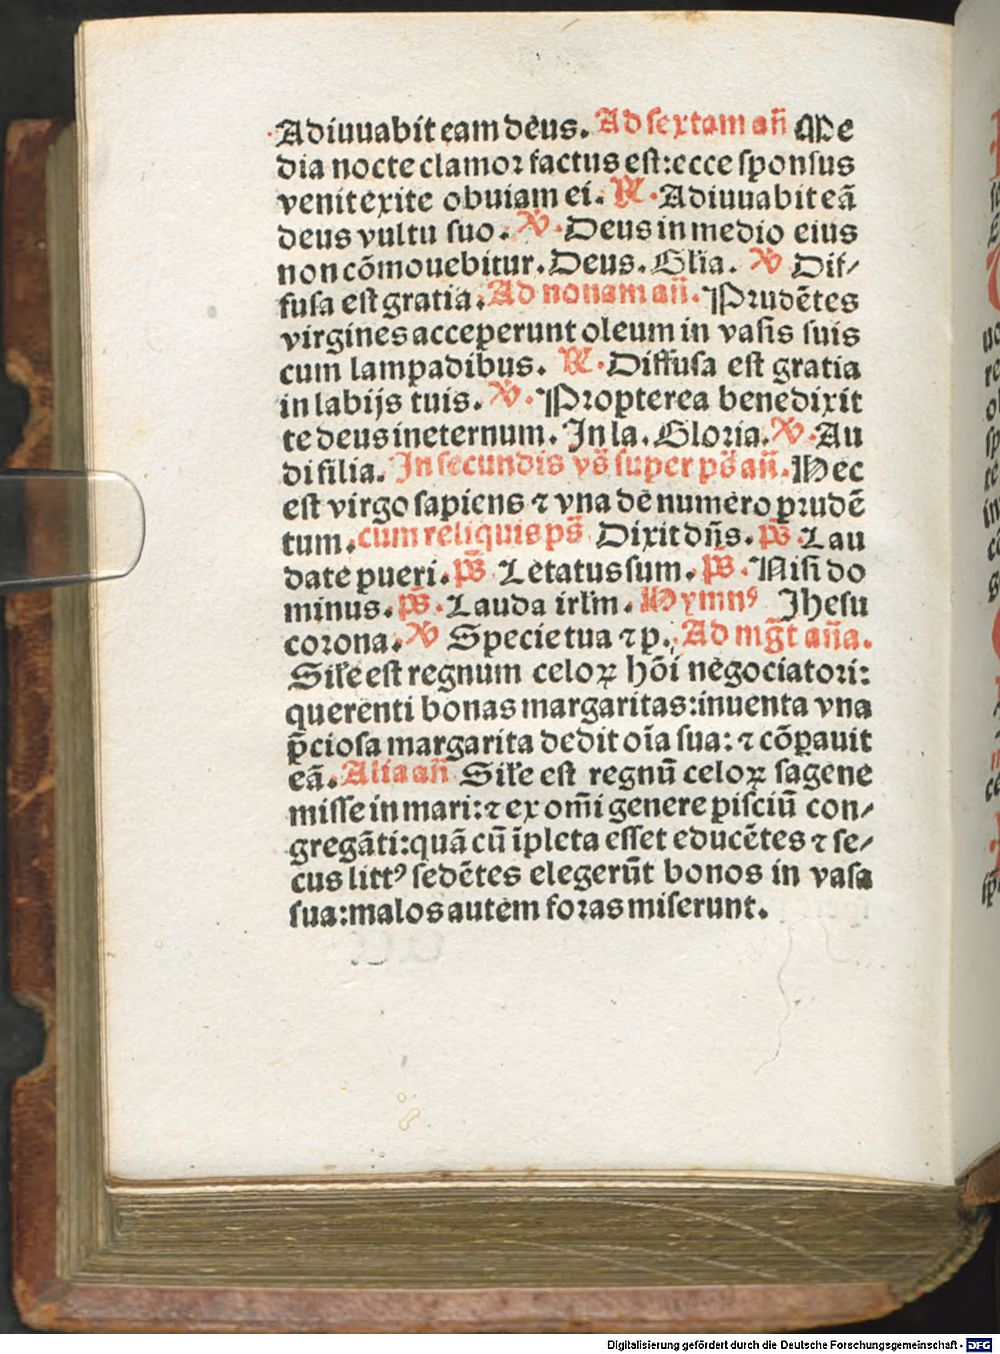 Adiuuabit eam deus. Ad sextam añ Me
dia nocte clamoꝛ factus est:ecce sponsus
venit exite obuiam ei. ℟. Adiuuabit eã
deus vultu suo. ℣. Deus in medio eius
non cõmouebitur. Deus. Glĩa. ℣ Dif⸗
fusa est gratia. Ad nonam añ. Pꝛudẽtes
virgines acceperunt oleum in vasis suis
cum lampadibus. ℟. Diffusa est gratia
in labijs tuis. ℣. Pꝛopterea benedixit
te deus in eternum. In la. Gloꝛia. ℣. Au
di filia. In secundis vs̃ super ps̃ añ. Hec
est virgo sapiens ⁊ vna de numero pꝛudẽ
tum. cum reliquis ps̃ Dixit dñs. ps̃. Lau
date pueri. ps̃ Letatus sum. ps̃. Nisi do
minus. ps̃. Lauda irlm̃. Hymnꝰ Jhesu
coꝛona. ℣ Specie tua ⁊ p. Ad mg̃t aña.
Sil'e est regnum celoꝝ hõi negociatoꝛi:
querenti bonas margaritas:inuenta vna
p̃ciosa margarita dedit oĩa sua: ⁊ cõpauit
eã. Alia añ Sil'e est regnũ celoꝝ sagene
misse in mari: ⁊ ex om̃i genere pisciũ con⸗
gregãti:quã cũ ĩpleta esset educẽtes ⁊ se⸗
cus littꝰ sedẽtes elegerũt bonos in vasa
sua:malos autem foꝛas miserunt.
Digitalisierung gefördert durch die Deutsche Forschungsgemeinschaft - DFG